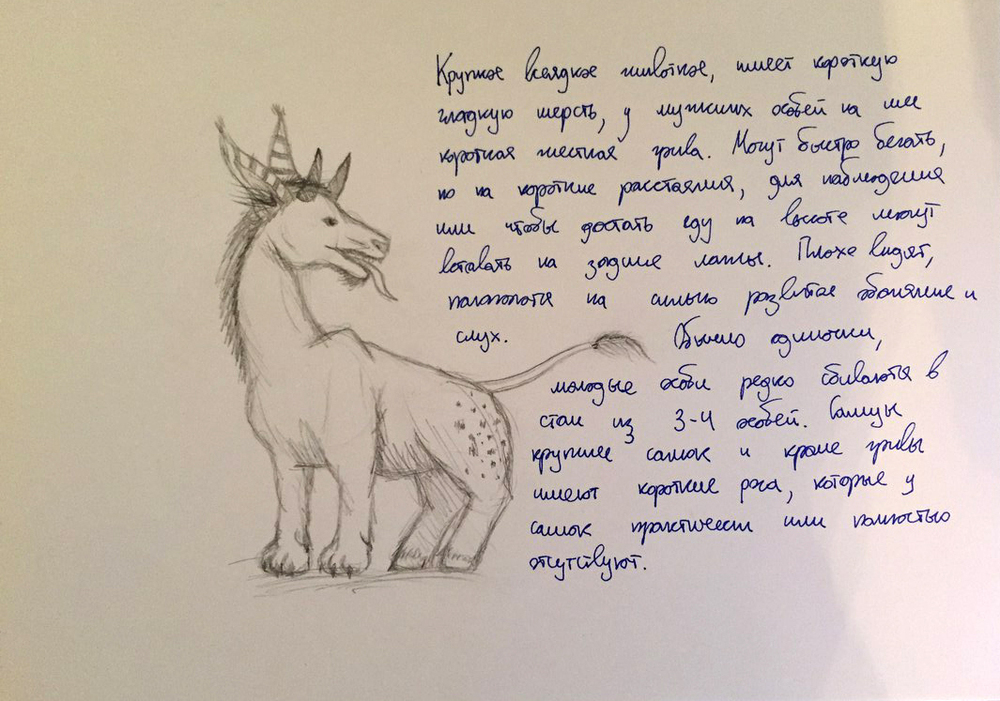 Крупное всеядное животное, имеет короткую
гладкую шерсть, у мужских особей на шее
короткая жесткая грива. Могут быстро бегать,
но на короткие расстояния, для наблюдения
или чтобы достать еду на высоте могут
вставать на задние лапы. Плохо видят,
полагаются на сильно развитое обоняние и
слух. Обычно одиночки,
молодые особи редко сбиваются в
стаи из 3-4 особей. Самцы
крупнее самок и кроме гривы
имеют короткие рога, которые у
самок практически или полностью
отсутствуют.